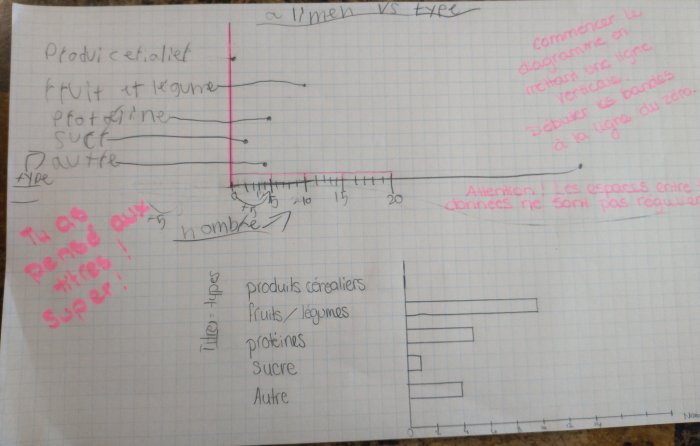 alimen vs type
Produicerialiet
fruit et légume
protoeiine
sucr
autre
type
0 5 10 15 20
+5
+5
nombre
commencer le
diagramme en
mettant une ligne
verticale.
Débuter les bandes
à la ligne du zéro.
Attention! Les espaces entre
données ne sont pas régulier
Tu as
pensé aux
titres!
Super!
Titres = types
produits céréaliers
fruits/légumes
protéines
sucre
Autre
0 2 4 6 8